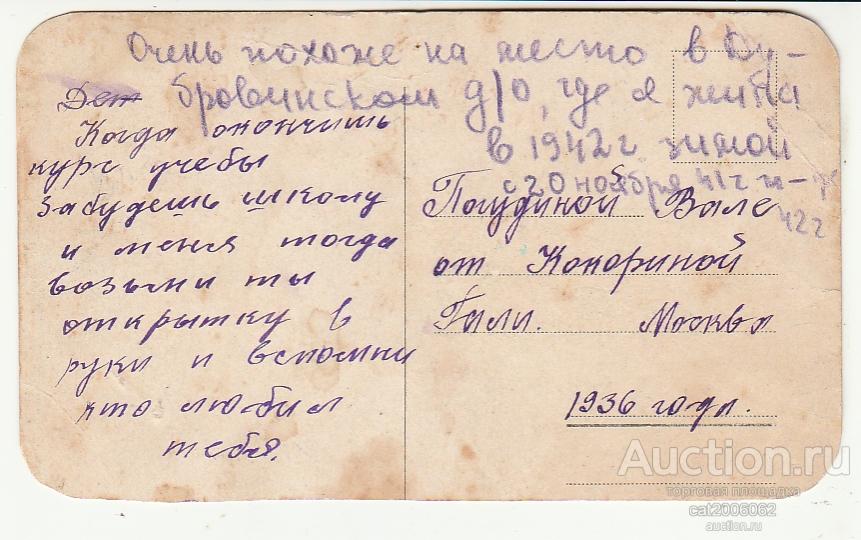 Очень похоже на место в Ду-
бровинском д/о, где я жила
в 1942 г. зимой
с 20 ноября 41 г
42 г
Дет
Когда окончишь
курс учебы
забудешь школу
и меня тогда
возьми ты
открытку в
руки и вспомни
кто любил
тебя.
Вале
от Кокориной
Гали. Москва
1936 годл.
Auction.ru
торговая площадка
cat2006062
auction.ru